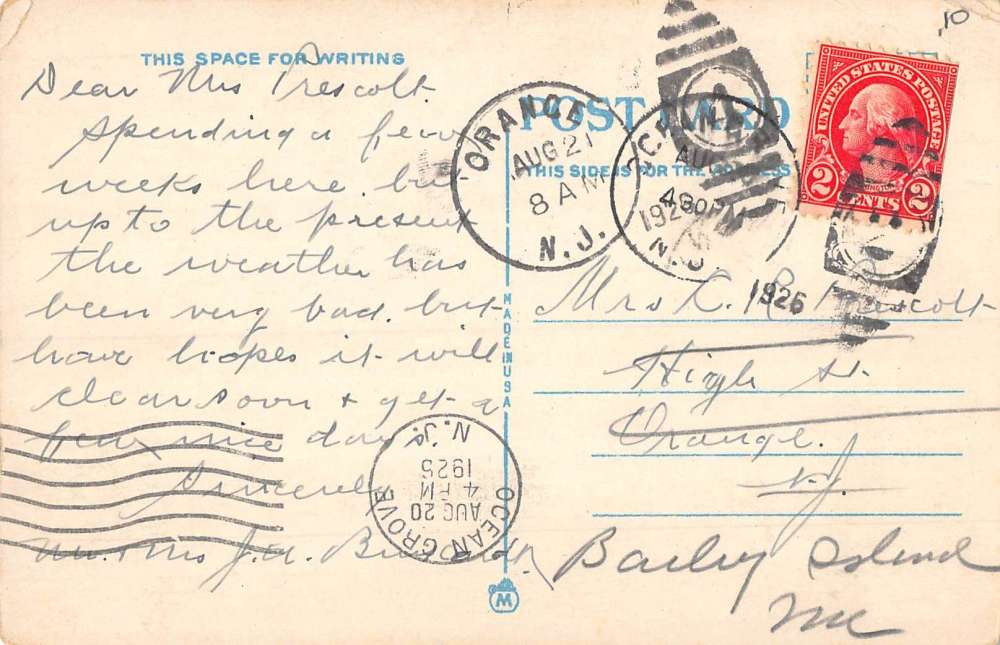 THIS SPACE FOR WRITING
Dear Mrs Prescott.
Spending a few
weeks here. but
up to the present
the weather has
been very bad. but
have hopes it will
clear soon & get a
few nice days
Sincerely
Mr. & Mrs J. A.
MADE IN USA
M
10
POST CARD
THIS SIDE IS FOR THE ADDRESS
ORANGE
AUG 21
8 AM
N.J.
AUG
4 30 PM
N.J.
1925
UNITED STATES POSTAGE
2 CENTS 2
Mrs L. R. Prescott
High St.
Orange.
N.J.
Bailey Island
Me
OCEAN GROVE
AUG 20
4 PM
1925
N.J.